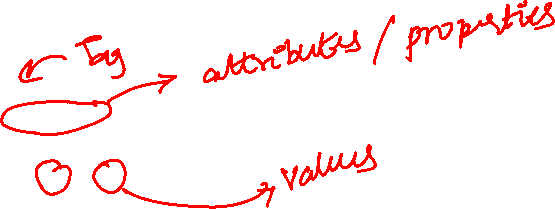 Tag
attributes / properties
values